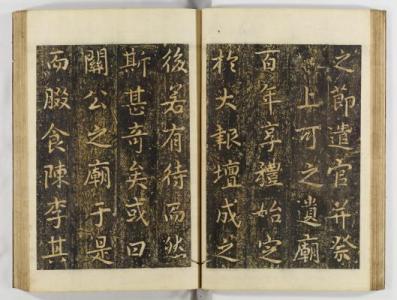 之節遣官并祭
上可之遺廟
百年享禮始定
於大報壇成之
後若有待而然
斯甚奇矣或曰
關公之廟于是
而腏食陳李其